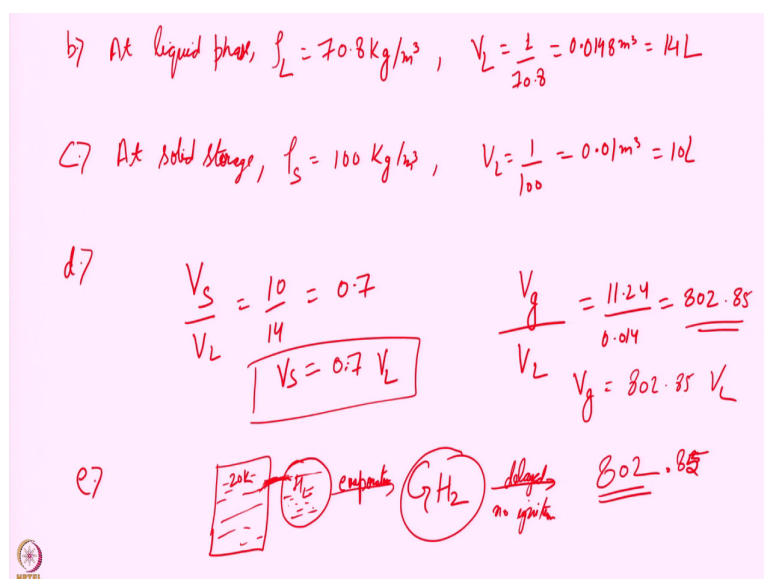 b7 At liquid phase, ρ_L = 70.8 Kg/m³, V_L = 1/70.8 = 0.0148 m³ = 14L
C7 At solid storage, ρ_s = 100 Kg/m³, V_L = 1/100 = 0.01 m³ = 10L
d7 V_S/V_L = 10/14 = 0.7 V_g/V_L = 11.24/0.014 = 802.85
V_S = 0.7 V_L V_g = 802.85 V_L
e7 -20K- evaporation GH₂ delayed 802.85
no ignition
NPTEL